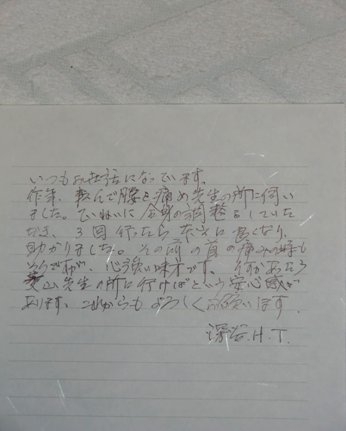 いつもお世話になっています。
昨年、転んで腰を痛め先生の所に伺い
ました。ていねいに全身の調整をしていた
だき、3回行ったら大さに良くなり、
助かりました。その前の首の痛みの時も
そうですが、心強い味方です。何かあったら
先生の所に行けばという安心感が
あります。これからもよろしくお願いします。
深谷.H.T.